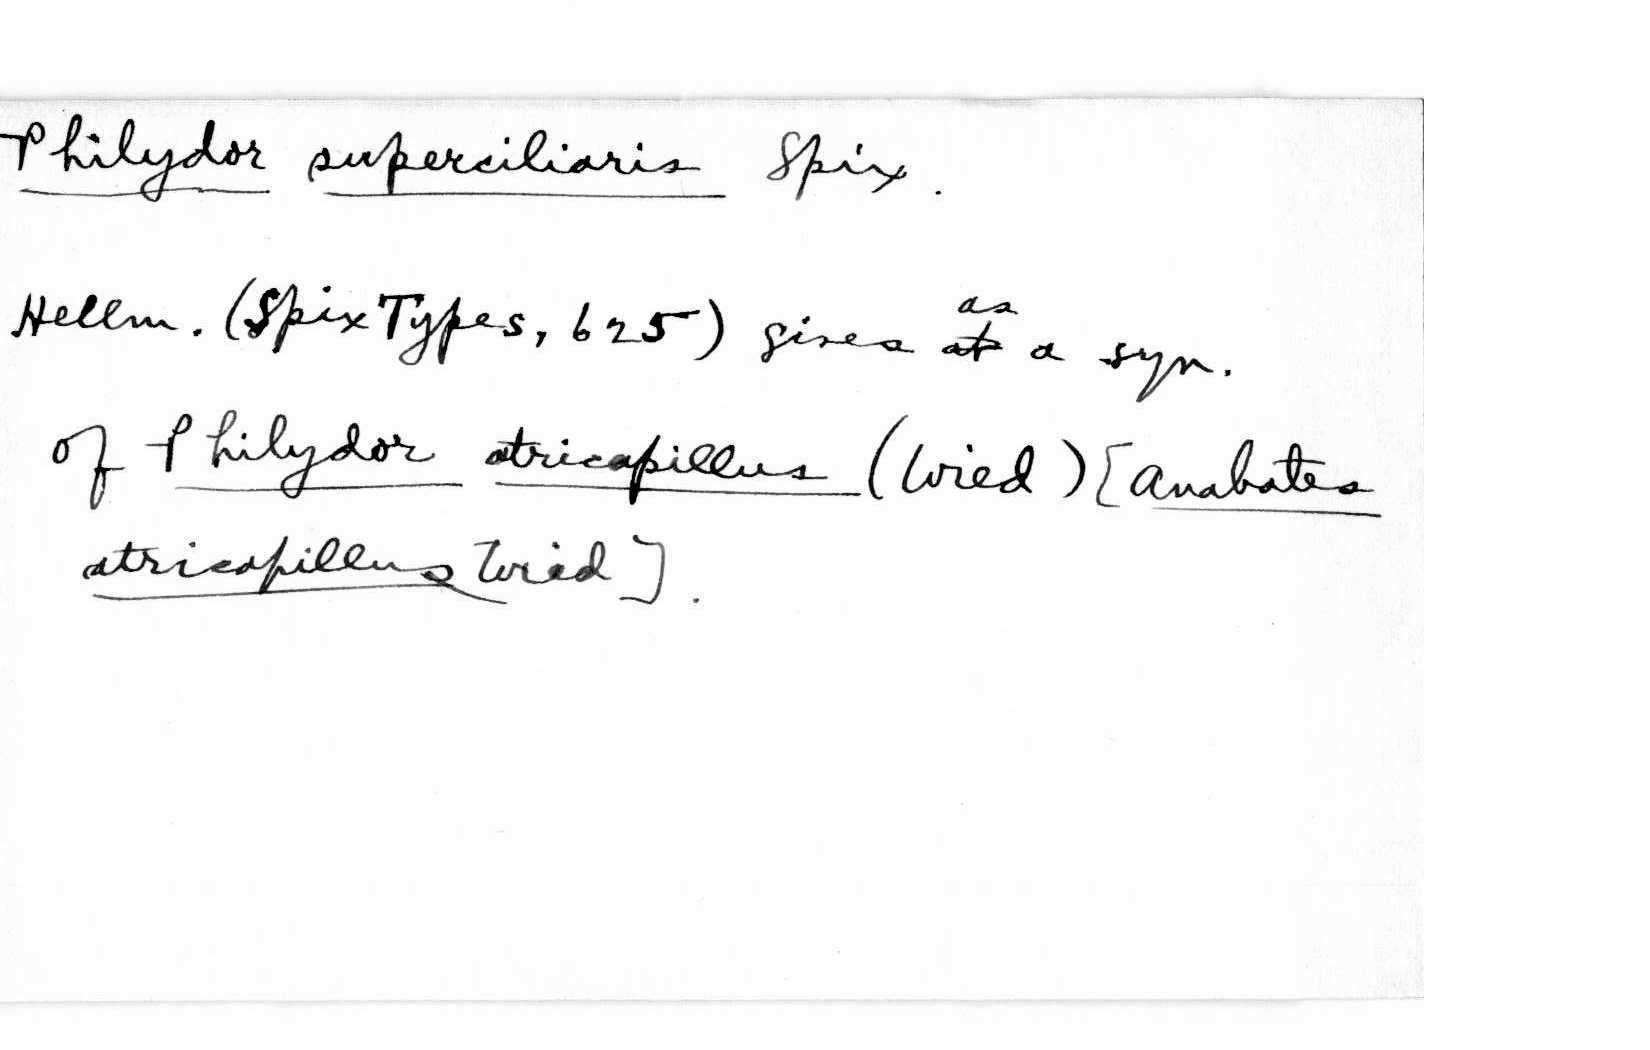 Philydor superciliaris Spix.
Hellm. (Spix Types, 625) gives as a syn.
of Philydor atricapillus (Wied) [Anabates
atricapillus Wied].